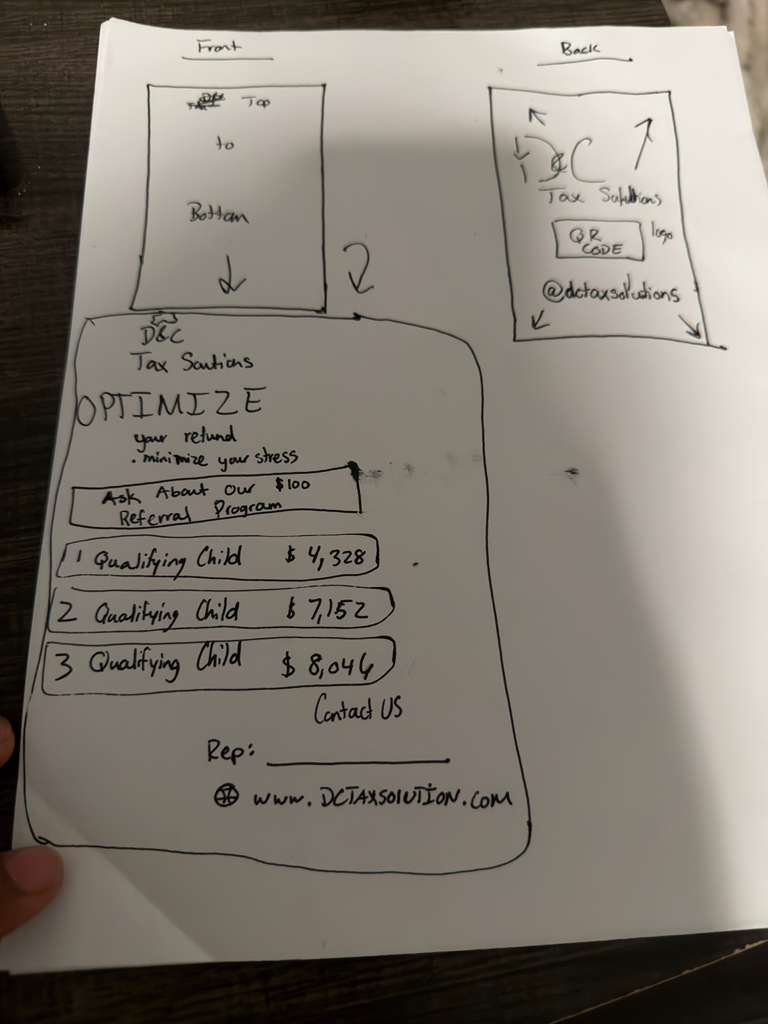 Front
Top
to
Bottom
Back
D&C
Tax Solutions
QR
CODE
logo
@dctaxsolutions
D&C
Tax Soutions
OPTIMIZE
your refund
. minimize your stress
Ask About Our $100
Referral Program
1 Qualifying Child $ 4,328
2 Qualifying Child $ 7,152
3 Qualifying Child $ 8,046
Contact US
Rep:
www.DCTAXSOLUTION.COM